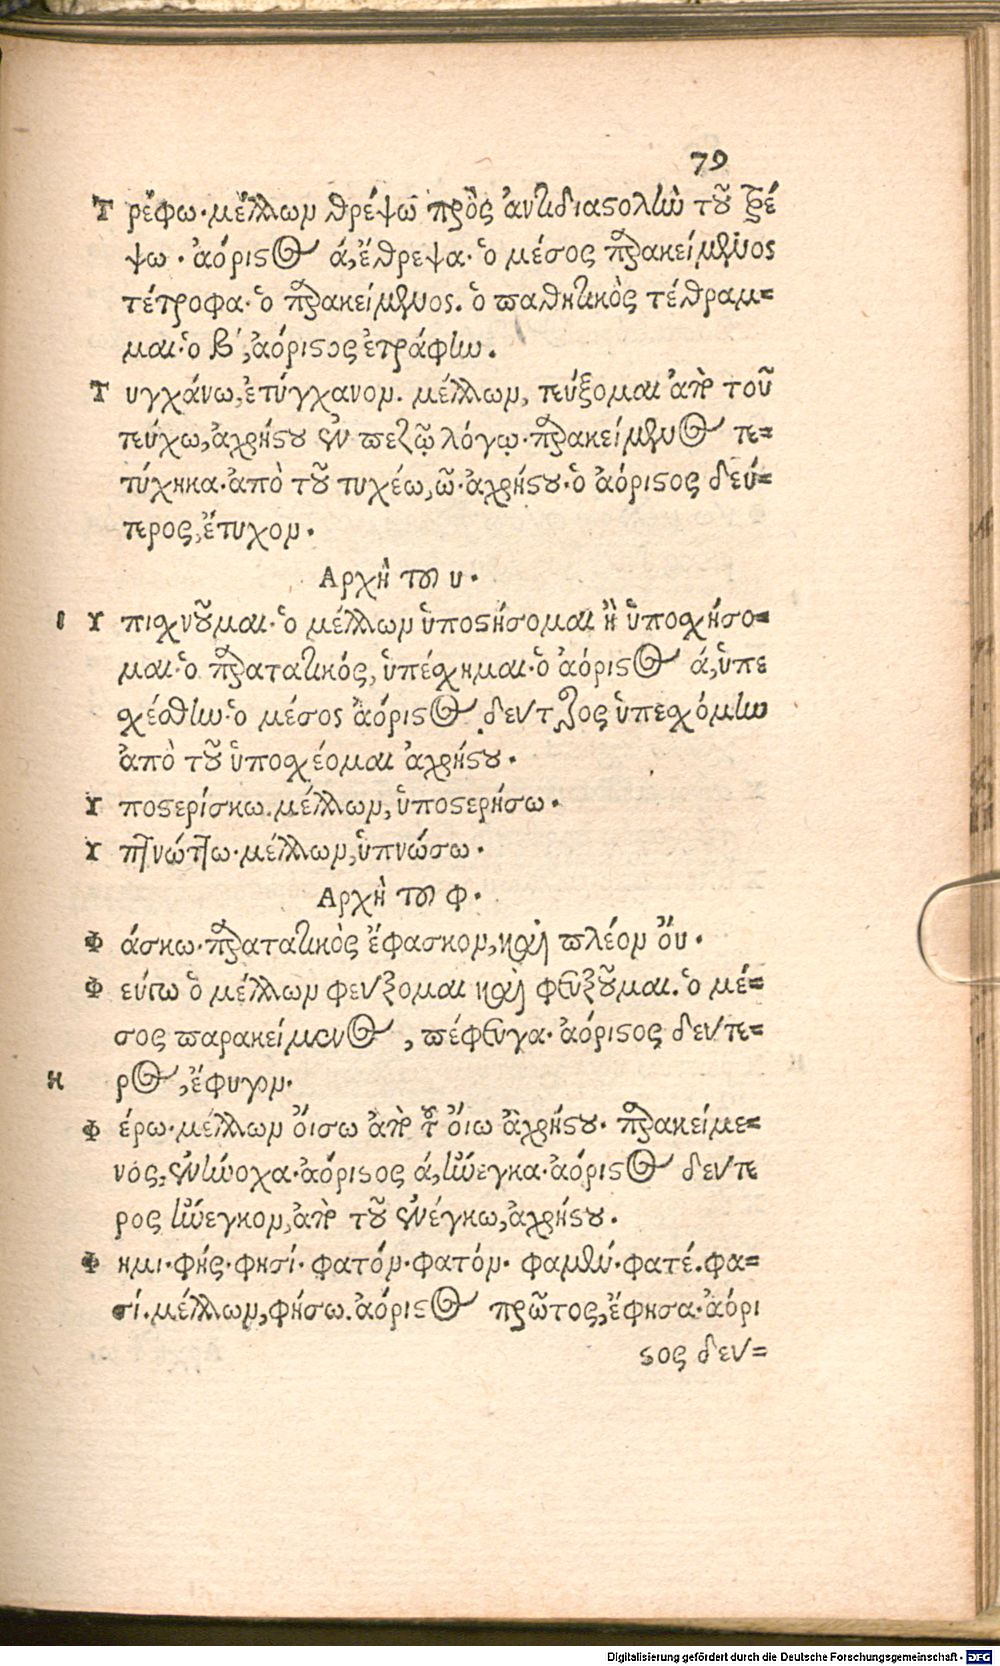 79
Τ ρέφω· μέλλων θρέψω πρὸς ἀντιδιαστολὴν τοῦ τρέ
ψω · ἀόριστος ά, ἔθρεψα· ὁ μέσος παρακείμενος
τέτροφα· ὁ παρακείμενος. ὁ παθητικὸς τέθραμ=
μαι· ὁ β΄, ἀόριστος ἐτράφην.
Τ υγχάνω, ἐτύγχανον. μέλλων, τεύξομαι ἀπὸ τοῦ
τεύχω, ἀχρήστου ἐν πεζῷ λόγῳ· παρακείμενος τε=
τύχηκα· ἀπὸ τοῦ τυχέω, ῶ· ἀχρήστου· ὁ ἀόριστος δεύ=
τερος, ἔτυχον.
Αρχὴ τοῦ υ.
Ι Υ πισχνοῦμαι· ὁ μέλλων ὑποστήσομαι ἢ ὑποσχήσο=
μαι· ὁ παρατατικός, ὑπέσχημαι· ὁ ἀόριστος ά, ὑπε
σχέσθην· ὁ μέσος ἀόριστος δεύτερος ὑπεσχόμην
ἀπὸ τοῦ ὑποσχέομαι ἀχρήστου.
Υ ποστερίσκω. μέλλων, ὑποστερήσω.
Υ πνώττω· μέλλων, ὑπνώσω.
Αρχὴ τοῦ φ.
Φ άσκω· παρατατικὸς ἔφασκον, καὶ πλέον οὔ.
Φ εύγω ὁ μέλλων φεύξομαι καὶ φευξοῦμαι. ὁ μέ=
σος παρακείμενος, πέφευγα· ἀόριστος δεύτε=
Κ ρος, ἔφυγον.
Φ έρω· μέλλων οἴσω ἀπὸ τοῦ οἴω ἀχρήστου· παρακείμε=
νός, ἐνήνοχα· ἀόριστος ά, ἤνεγκα· ἀόριστος δεύτε
ρος ἤνεγκον, ἀπὸ τοῦ ἐνέγκω, ἀχρήστου.
Φ ημι· φής· φησί· φατόν· φατόν· φαμέν· φατέ. φα=
σί. μέλλων, φήσω. ἀόριστος πρῶτος, ἔφησα· ἀόρι
στος δεύ=
Digitalisierung gefördert durch die Deutsche Forschungsgemeinschaft - DFG